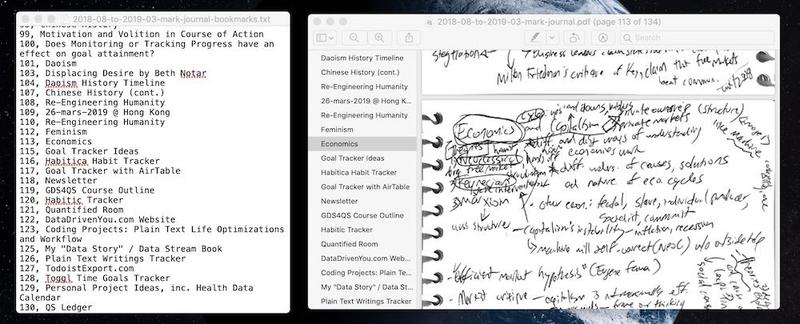 2018-08-to-2019-03-mark-journal-bookmarks.txt
99, Chinese History
99, Motivation and Volition in Course of Action
100, Does Monitoring or Tracking Progress have an
effect on goal attainment?
101, Daoism
103, Displacing Desire by Beth Notar
104, Daoism History Timeline
107, Chinese History (cont.)
108, Re-Engineering Humanity
109, 26-mars-2019 @ Hong Kong
110, Re-Engineering Humanity
112, Feminism
113, Economics
115, Goal Tracker Ideas
116, Habitica Habit Tracker
117, Goal Tracker with AirTable
118, Newsletter
119, GDS4QS Course Outline
120, Habitic Tracker
121, Quantified Room
122, DataDrivenYou.com Website
123, Coding Projects: Plain Text Life Optimizations
and Workflow
125, My "Data Story" / Data Stream Book
126, Plain Text Writings Tracker
127, TodoistExport.com
128, Toggl Time Goals Tracker
129, Personal Project Ideas, inc. Health Data
Calendar
130, QS Ledger
2018-08-to-2019-03-mark-journal.pdf (page 113 of 134)
Search
Daoism History Timeline
Chinese History (cont.)
Re-Engineering Humanity
26-mars-2019 @ Hong K...
Re-Engineering Humanity
Feminism
Economics
Goal Tracker Ideas
Habitica Habit Tracker
Goal Tracker with AirTable
Newsletter
GDS4QS Course Outline
Habitic Tracker
Quantified Room
DataDrivenYou.com Web...
Coding Projects: Plain Te...
My "Data Story" / Data St...
Plain Text Writings Tracker
Milton Friedman's critique of Keyn claim that free markets
Economics and Capitalism
private markets
diff. and disting ways of understanding
how economies work
Neoclassical
free market
Keynesians
diff. views of causes, solutions
and nature of eco cycles
Marxism
other econ: feudal, slave, individual producer,
Socialist, communist
class structure
capitalism's instability - inflation, recession
markets will self-correct (Neoc) w/o outside help
"efficient market hypothesis" (Eugene Fama)
Market critique - capitalism is not necessarily eff.